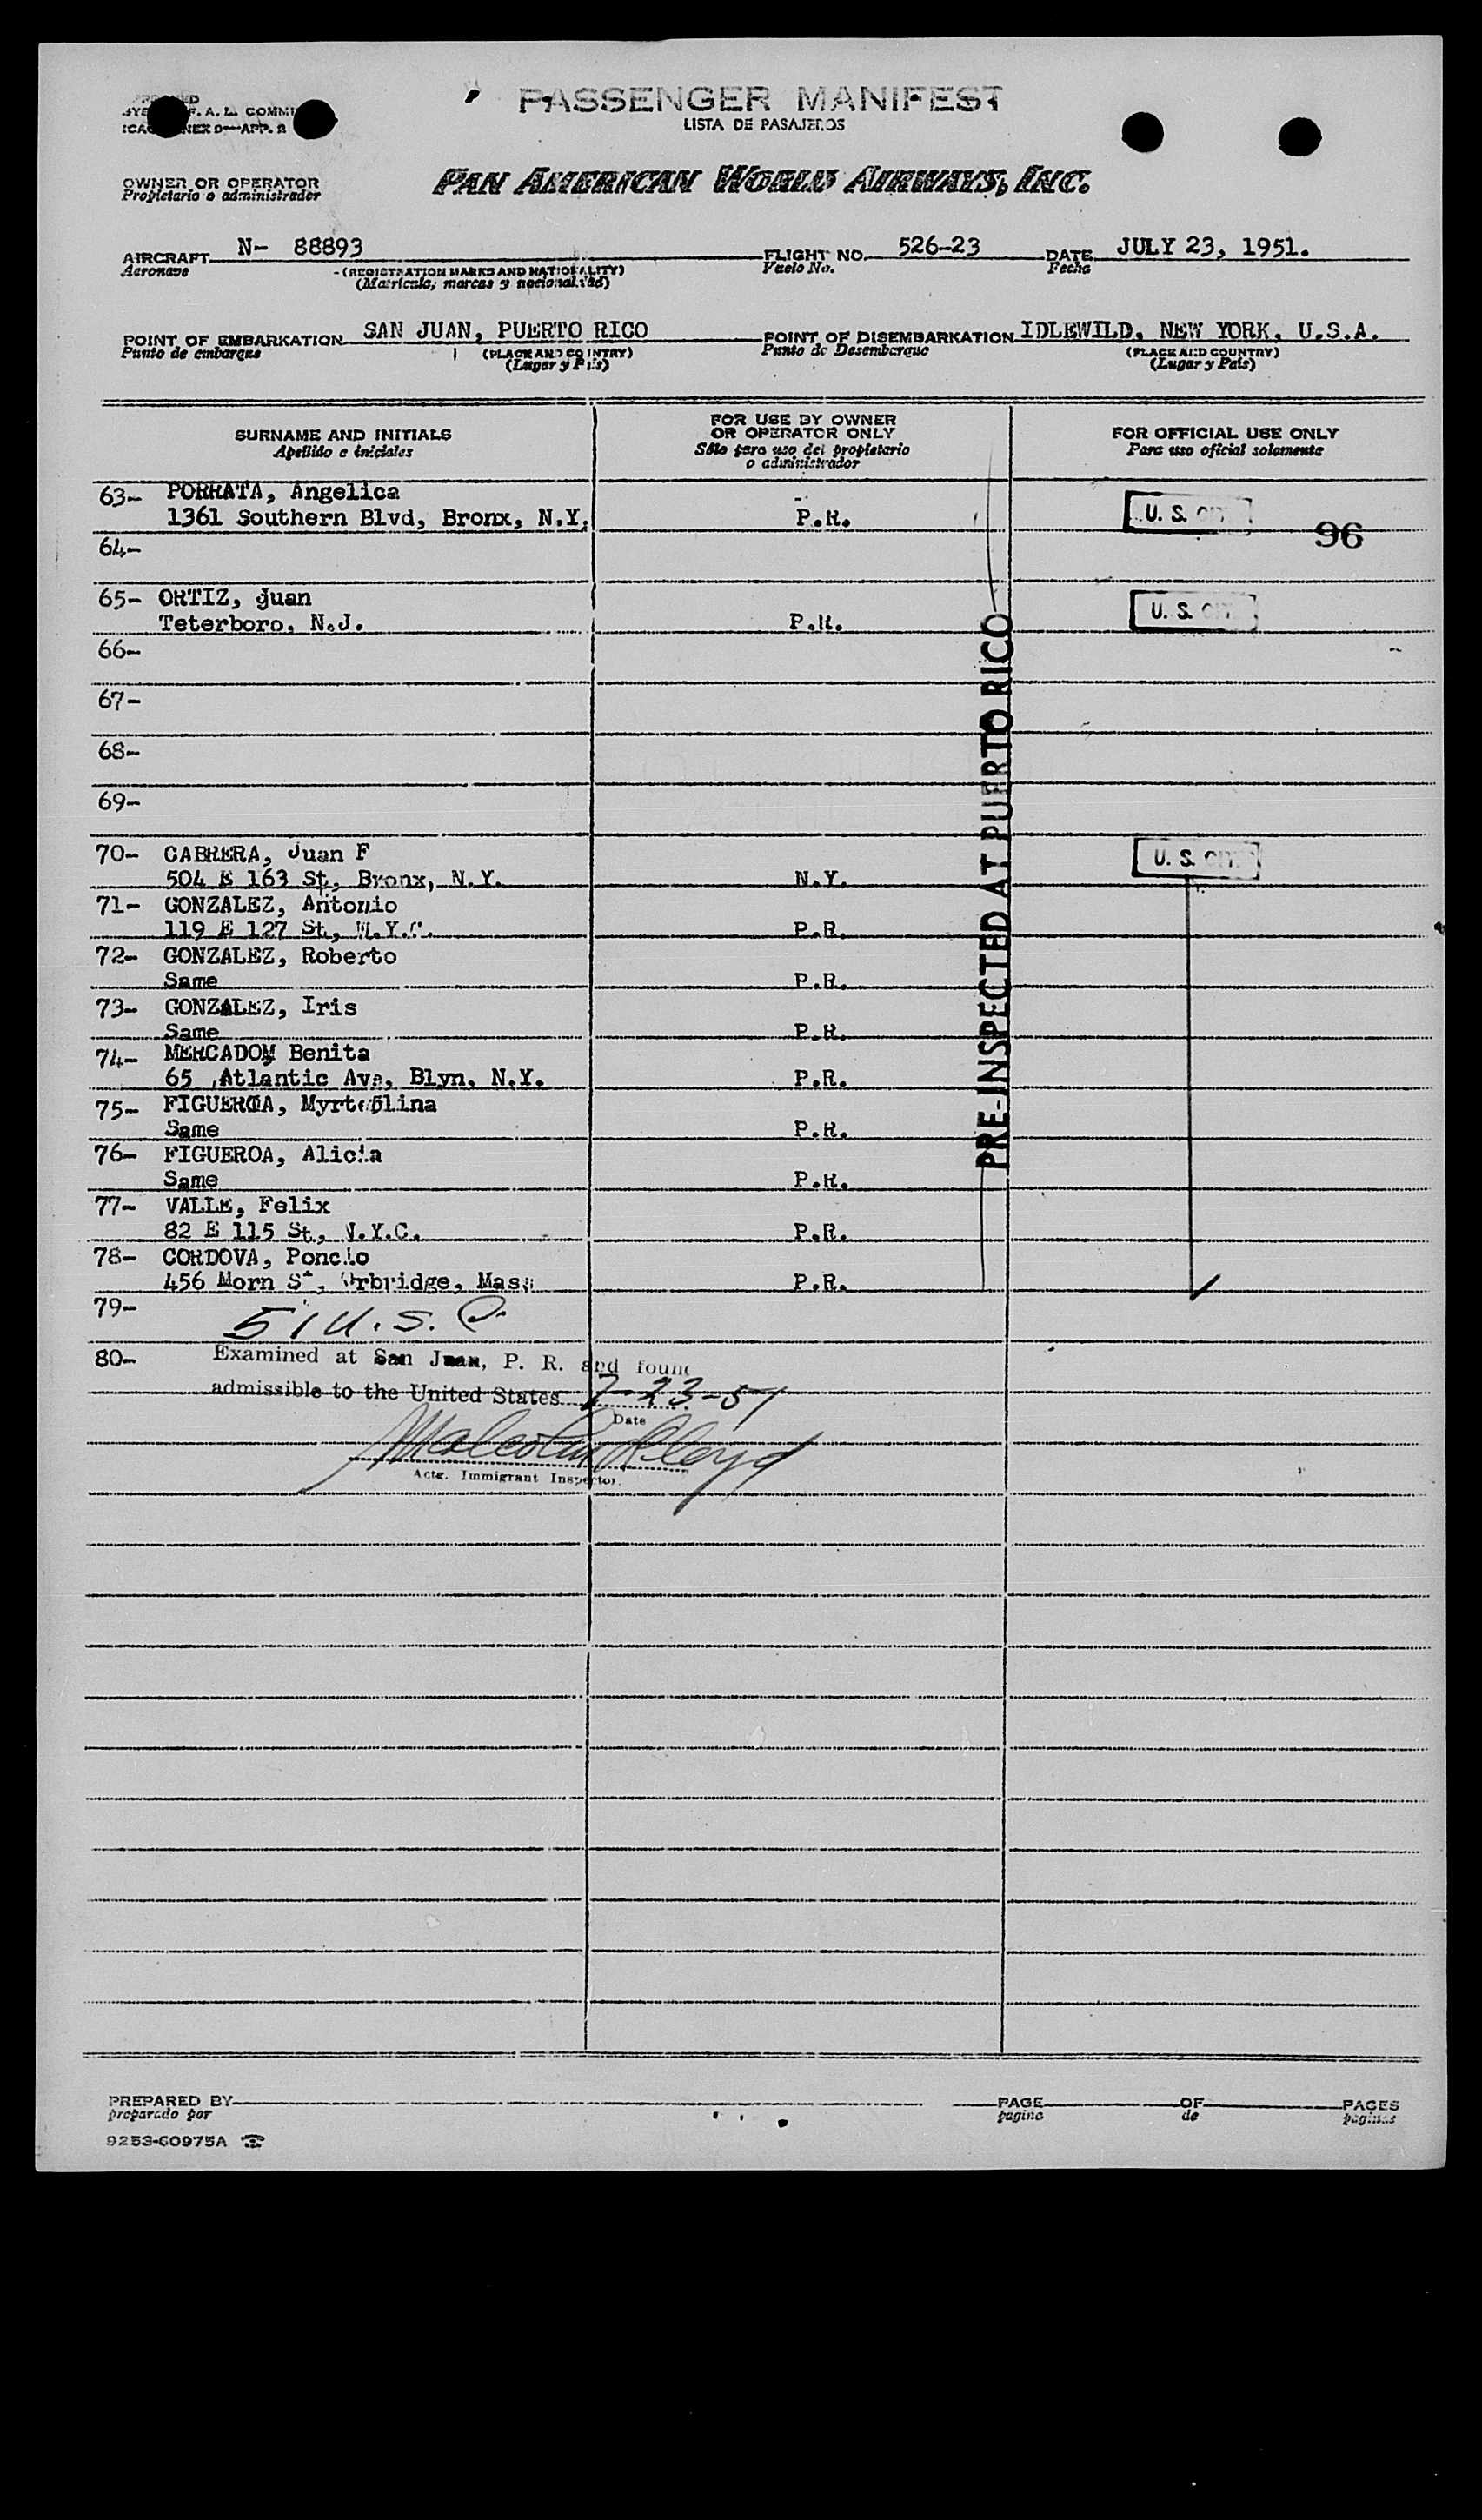 PASSENGER MANIFEST
LISTA DE PASAJEROS
F. A. L.
APP.
OWNER OR OPERATOR
Propietario o administrador
PAN AMERICAN WORLD AIRWAYS, INC.
AIRCRAFT N- 88893 FLIGHT NO. 526-23 DATE JULY 23, 1951.
Aeronave (REGISTRATION MARKS AND NATIONALITY) Vuelo No. Fecha
(Matricula; marcas y nacionalidad)
POINT OF EMBARKATION SAN JUAN, PUERTO RICO POINT OF DISEMBARKATION IDLEWILD, NEW YORK, U.S.A.
Punto de embarque (PLACE AND COUNTRY) Punto de Desembarque (PLACE AND COUNTRY)
(Lugar y País) (Lugar y País)
SURNAME AND INITIALS FOR USE BY OWNER OR OPERATOR ONLY FOR OFFICIAL USE ONLY
Apellido e iniciales Sólo para uso del propietario o administrador Para uso oficial solamente
63- PORRATA, Angelica
1361 Southern Blvd, Bronx, N.Y. P.R. U. S. CIT. 96
64-
65- ORTIZ, Juan
Teterboro, N.J. P.R. U. S. CIT.
66-
67-
68-
69-
PRE-INSPECTED AT PUERTO RICO
70- CABRERA, Juan F U. S. CIT.
504 E 163 St, Bronx, N.Y. N.Y.
71- GONZALEZ, Antonio
119 E 127 St, N.Y.C. P.R.
72- GONZALEZ, Roberto
Same P.R.
73- GONZALEZ, Iris
Same P.R.
74- MERCADO, Benita
65 Atlantic Ave, Blyn, N.Y. P.R.
75- FIGUEROA,
Same P.R.
76- FIGUEROA, Alicia
Same P.R.
77- VALLE, Felix
82 E 115 St, N.Y.C. P.R.
78- CORDOVA, Poncio
456 Morn St, Mass P.R.
79- 51 U.S.C.
80- Examined at San Juan, P. R. and found
admissible to the United States 7-23-51
Date
Malcolm Lloyd
Actg. Immigrant Inspector.
PREPARED BY PAGE OF PAGES
preparado por pagina de paginas
9253-60975A